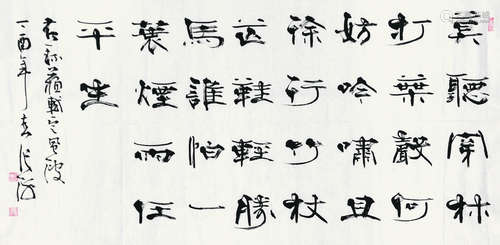 莫聽穿林
打葉聲何
妨吟嘯且
徐行竹杖
芒鞋輕勝
馬誰怕一
蓑煙雨任
平生
蘇軾定風波
丁酉年春